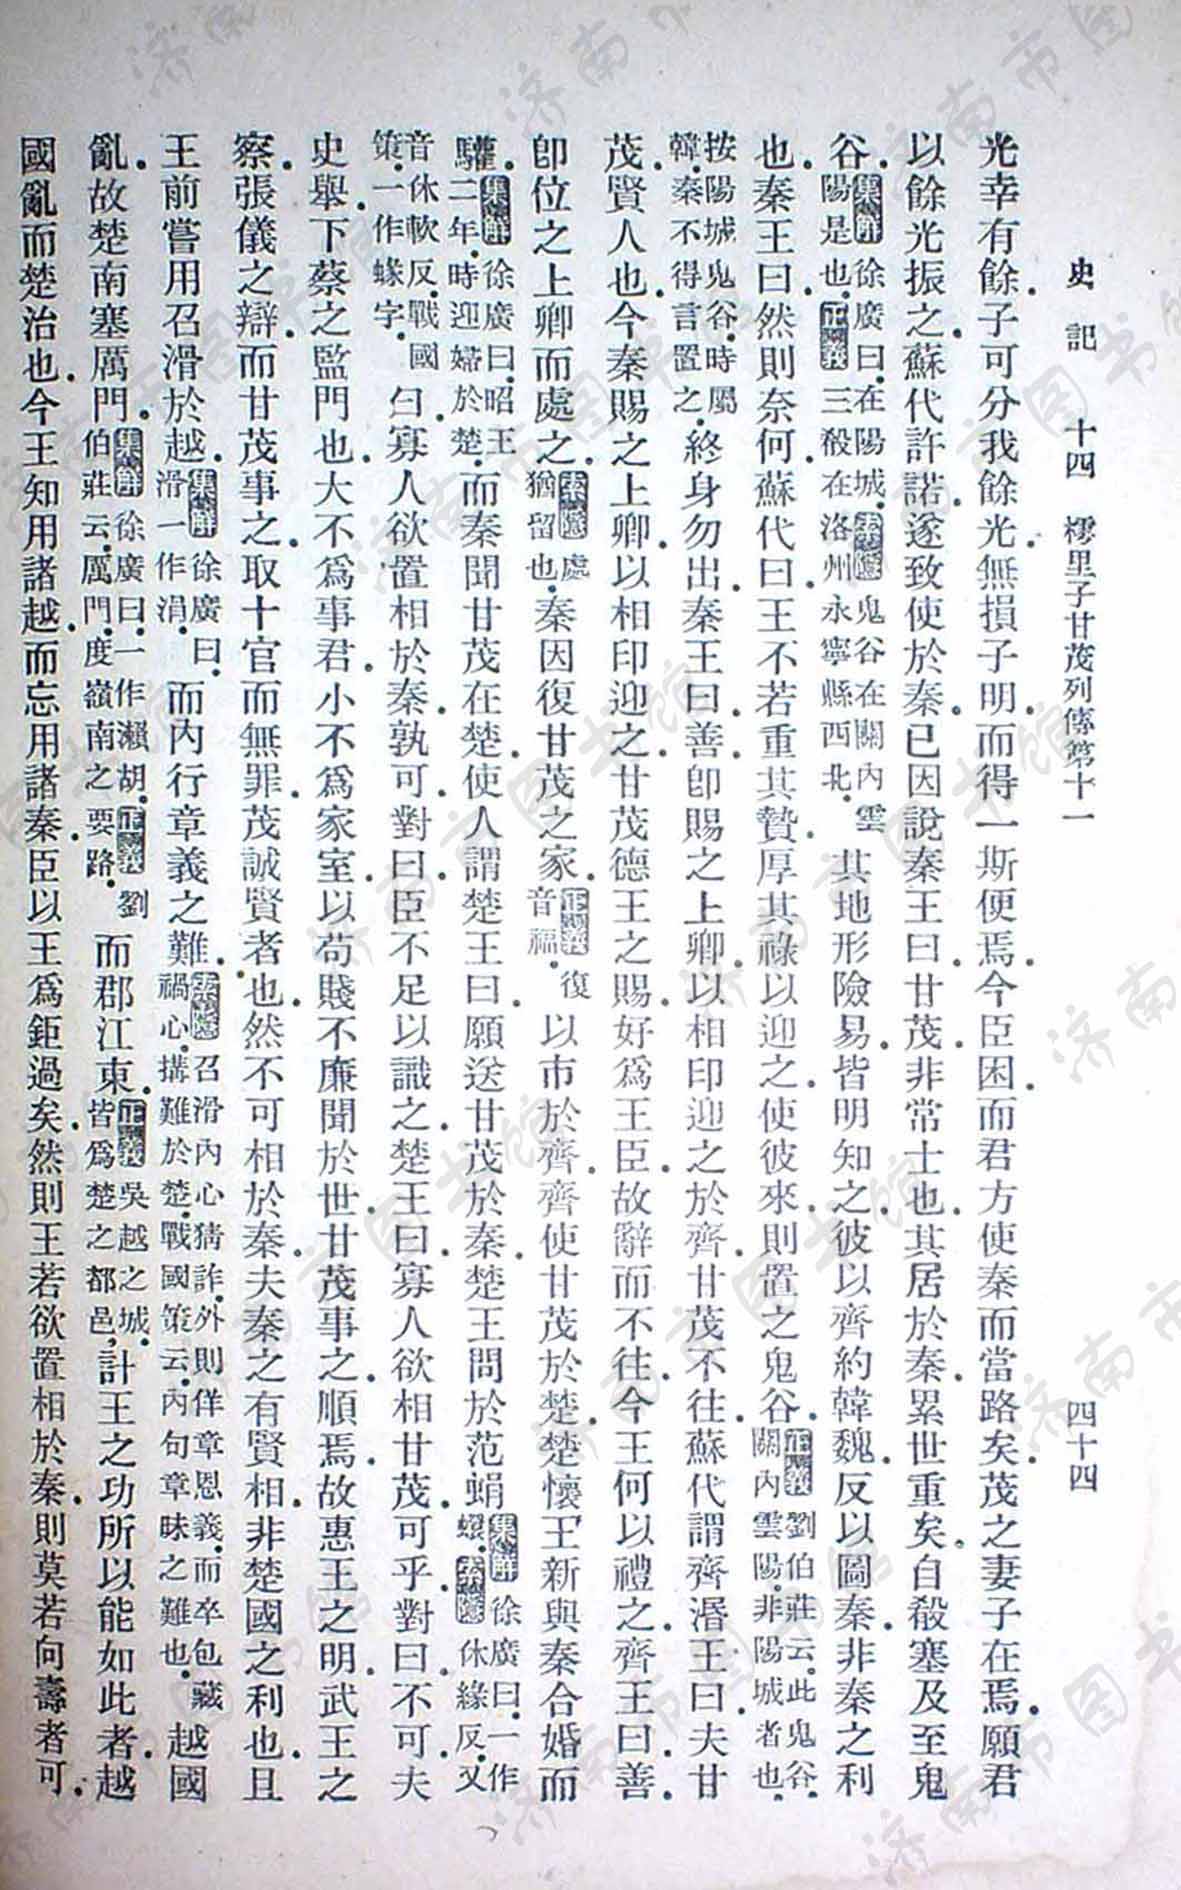 史記 十四 樗里子甘茂列傳第十一 四十四
光幸有餘．子可分我餘光．無損子明．而得一斯便焉．今臣困．而君方使秦而當路矣．茂之妻子在焉．願君
以餘光振之．蘇代許諾．遂致使於秦．已因說秦王曰．甘茂．非常士也．其居於秦．累世重矣．自殽塞及至鬼
谷．集解徐廣曰．在陽城．索隱鬼谷在關內雲陽是也．正義三殽在洛州永寧縣西北．其地形險易．皆明知之．彼以齊約韓魏．反以圖秦．非秦之利
也．秦王曰．然則奈何．蘇代曰．王不若重其贄．厚其祿以迎之．使彼來．則置之鬼谷．正義劉伯莊云．此鬼谷．關內雲陽．非陽城者也．
按陽城鬼谷．時屬韓．秦不得言置之．終身勿出．秦王曰．善．卽賜之上卿．以相印迎之於齊．甘茂不往．蘇代謂齊湣王曰．夫甘
茂．賢人也．今秦賜之上卿．以相印迎之．甘茂德王之賜．好爲王臣．故辭而不往．今王何以禮之．齊王曰．善．
卽位之上卿而處之．索隱處猶留也．秦因復甘茂之家．正義復音福．以市於齊．齊使甘茂於楚．楚懷王新與秦合婚而
驩．集解徐廣曰．昭王二年．時迎婦於楚．而秦聞甘茂在楚．使人謂楚王曰．願送甘茂於秦．楚王問於范蜎．集解徐廣曰．一作蠉．索隱休緣反．又
音休軟反．戰國策．一作蝝字．曰．寡人欲置相於秦．孰可．對曰．臣不足以識之．楚王曰．寡人欲相甘茂．可乎．對曰．不可．夫
史舉．下蔡之監門也．大不爲事君．小不爲家室．以苟賤不廉聞於世．甘茂事之．順焉．故惠王之明．武王之
察．張儀之辯．而甘茂事之．取十官而無罪．茂誠賢者也．然不可相於秦．夫秦之有賢相．非楚國之利也．且
王前嘗用召滑於越．集解徐廣曰．滑一作涓．而內行章義之難．索隱召滑內心猜詐．外則佯章恩義．而卒包藏禍心．搆難於楚．戰國策云．內句章昧之難也．越國
亂．故楚南塞厲門．集解徐廣曰．一作瀨胡．正義劉伯莊云．厲門．度嶺南之要路．而郡江東．正義吳越之城．皆爲楚之都邑．計王之功．所以能如此者．越
國亂而楚治也．今王知用諸越．而忘用諸秦．臣以王爲鉅過矣．然則王若欲置相於秦．則莫若向壽者可．